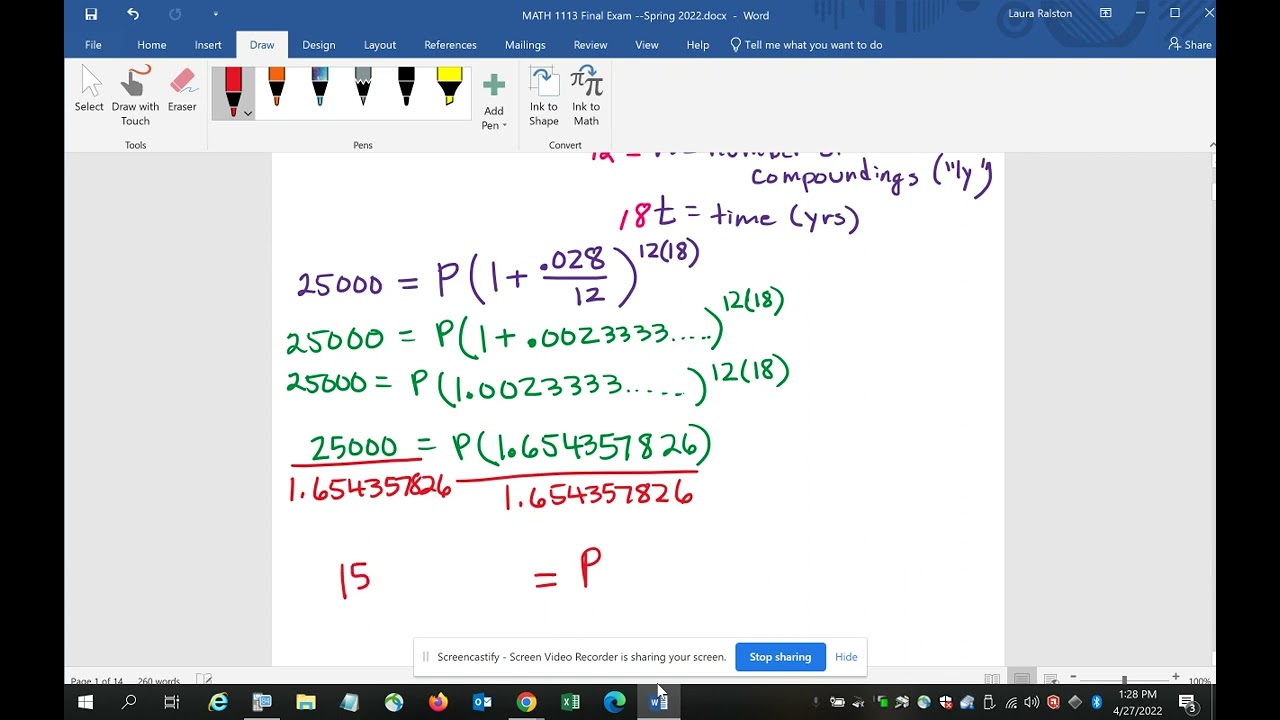 MATH 1113 Final Exam --Spring 2022.docx - Word
Laura Ralston
File Home Insert Draw Design Layout References Mailings Review View Help Tell me what you want to do Share
Select Draw with Touch Eraser
Add Pen
Ink to Shape
Ink to Math
Tools Pens Convert
12 =
compoundings ("/y")
18 t = time (yrs)
25000 = P(1 + .028/12)^12(18)
25000 = P(1 + .0023333....)^12(18)
25000 = P(1.0023333.....)^12(18)
25000 = P(1.654357826)
1.654357826 1.654357826
15 = P
Screencastify - Screen Video Recorder is sharing your screen. Stop sharing Hide
Page 1 of 14 260 words 100%
1:28 PM
4/27/2022
3